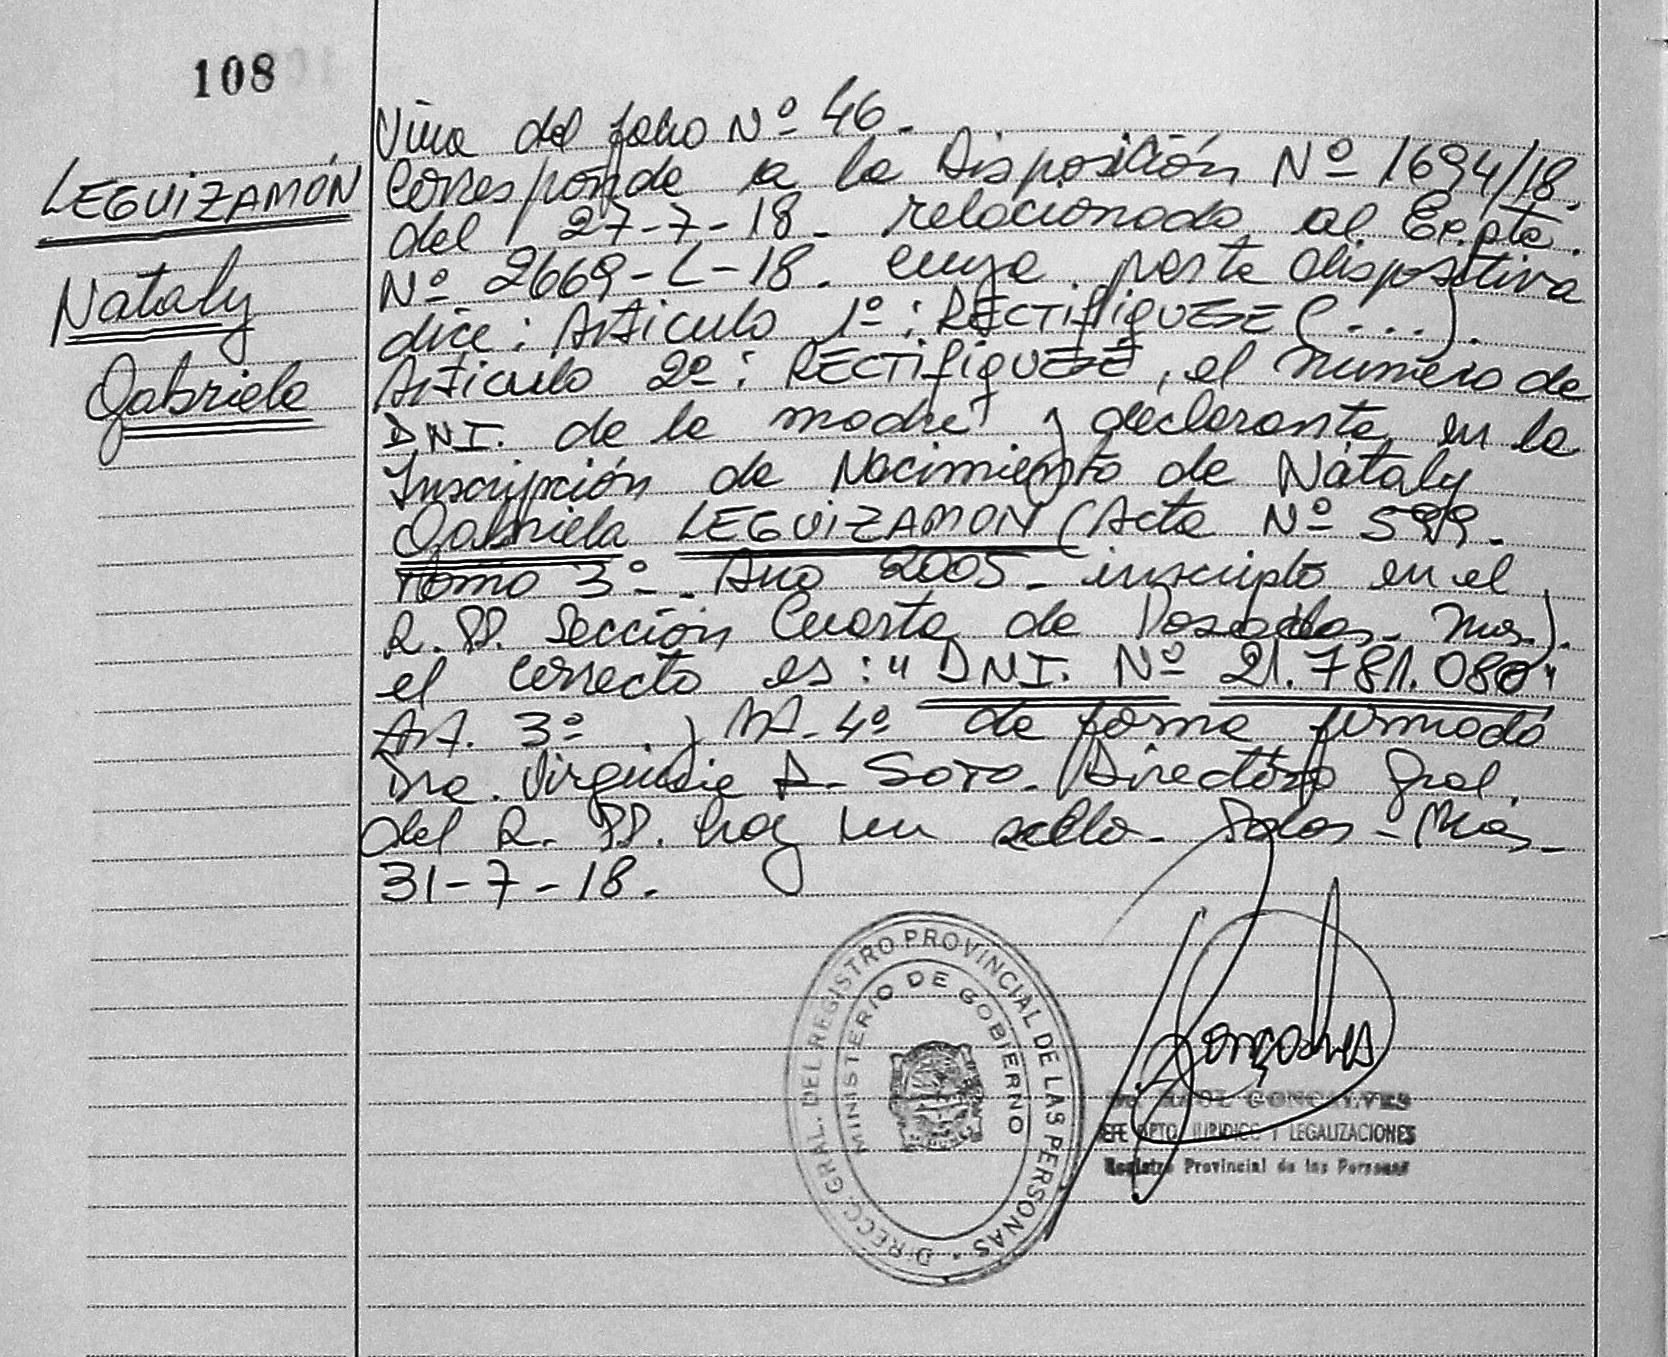 108
LEGUIZAMÓN
Nataly
Gabriela
Viene del folio Nº 46.
Corresponde a la Disposición Nº 1694/18.
del 27-7-18. relacionado al Expte.
Nº 2669-L-18. cuya parte dispositiva
dice: Articulo 1º: RECTIFIQUESE (....)
Articulo 2º: RECTIFIQUESE, el numero de
DNI. de la madre y declarante en la
Inscripción de Nacimiento de Nataly
Gabriela LEGUIZAMON (Acta Nº 599.
Tomo 3º. Año 2005. inscripto en el
R.PP. Sección Cuarta de Posadas. Mnes.).
el correcto es: "DNI. Nº 21.781.080"
Art. 3º y Art. 4º de forma firmado
Dra. Virginia A. Soto. Directora Gral.
del R. PP. hay un sello. Pdas-Mnes.
31-7-18.
DIRECC. GRAL. DEL REGISTRO PROVINCIAL DE LAS PERSONAS
MINISTERIO DE GOBIERNO
Gonçalves
RAUL GONCALVES
JEFE DPTO. JURIDICO Y LEGALIZACIONES
Registro Provincial de las Personas